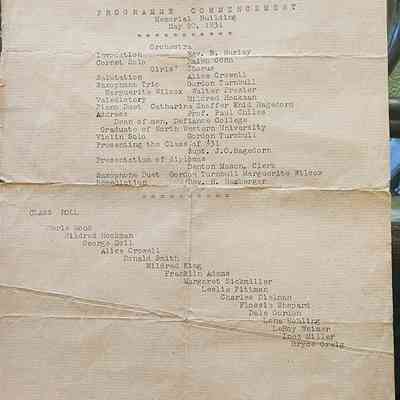 PROGRAMME COMMENCEMENT
Memorial Building
May 20, 1931
Orchestra
Invocation Rev. N. Hurley
Cornet Solo Conn
Girls' Chorus
Salutation Alice Crowell
Saxophone Trio Gordon Turnbull
Marguerite Wilcox Walter Presler
Valedictory Mildred Hockman
Piano Duet Catharine Sheffer Enid Hagedorn
Address Prof. Paul Chiles
Dean of men, Defiance College
Graduate of North Western University
Violin Solo Gordon Turnbull
Presenting the Class of '31
Supt. J.O.Hagedorn
Presentation of diplomas
Denton Mason, Clerk
Saxophone Duet Gordon Turnbull Marguerite Wilcox
Benediction Rev. H.
CLASS ROLL
Mildred Hockman
George Doll
Alice Crowell
Donald Smith
Mildred King
Franklin Adams
Margaret Sickmiller
Leslie Pittman
Charles Dielman
Flossie Shepard
Dale Gordon
Lena Wehling
LeRoy Weimer
Inez Miller
Bryce Greig